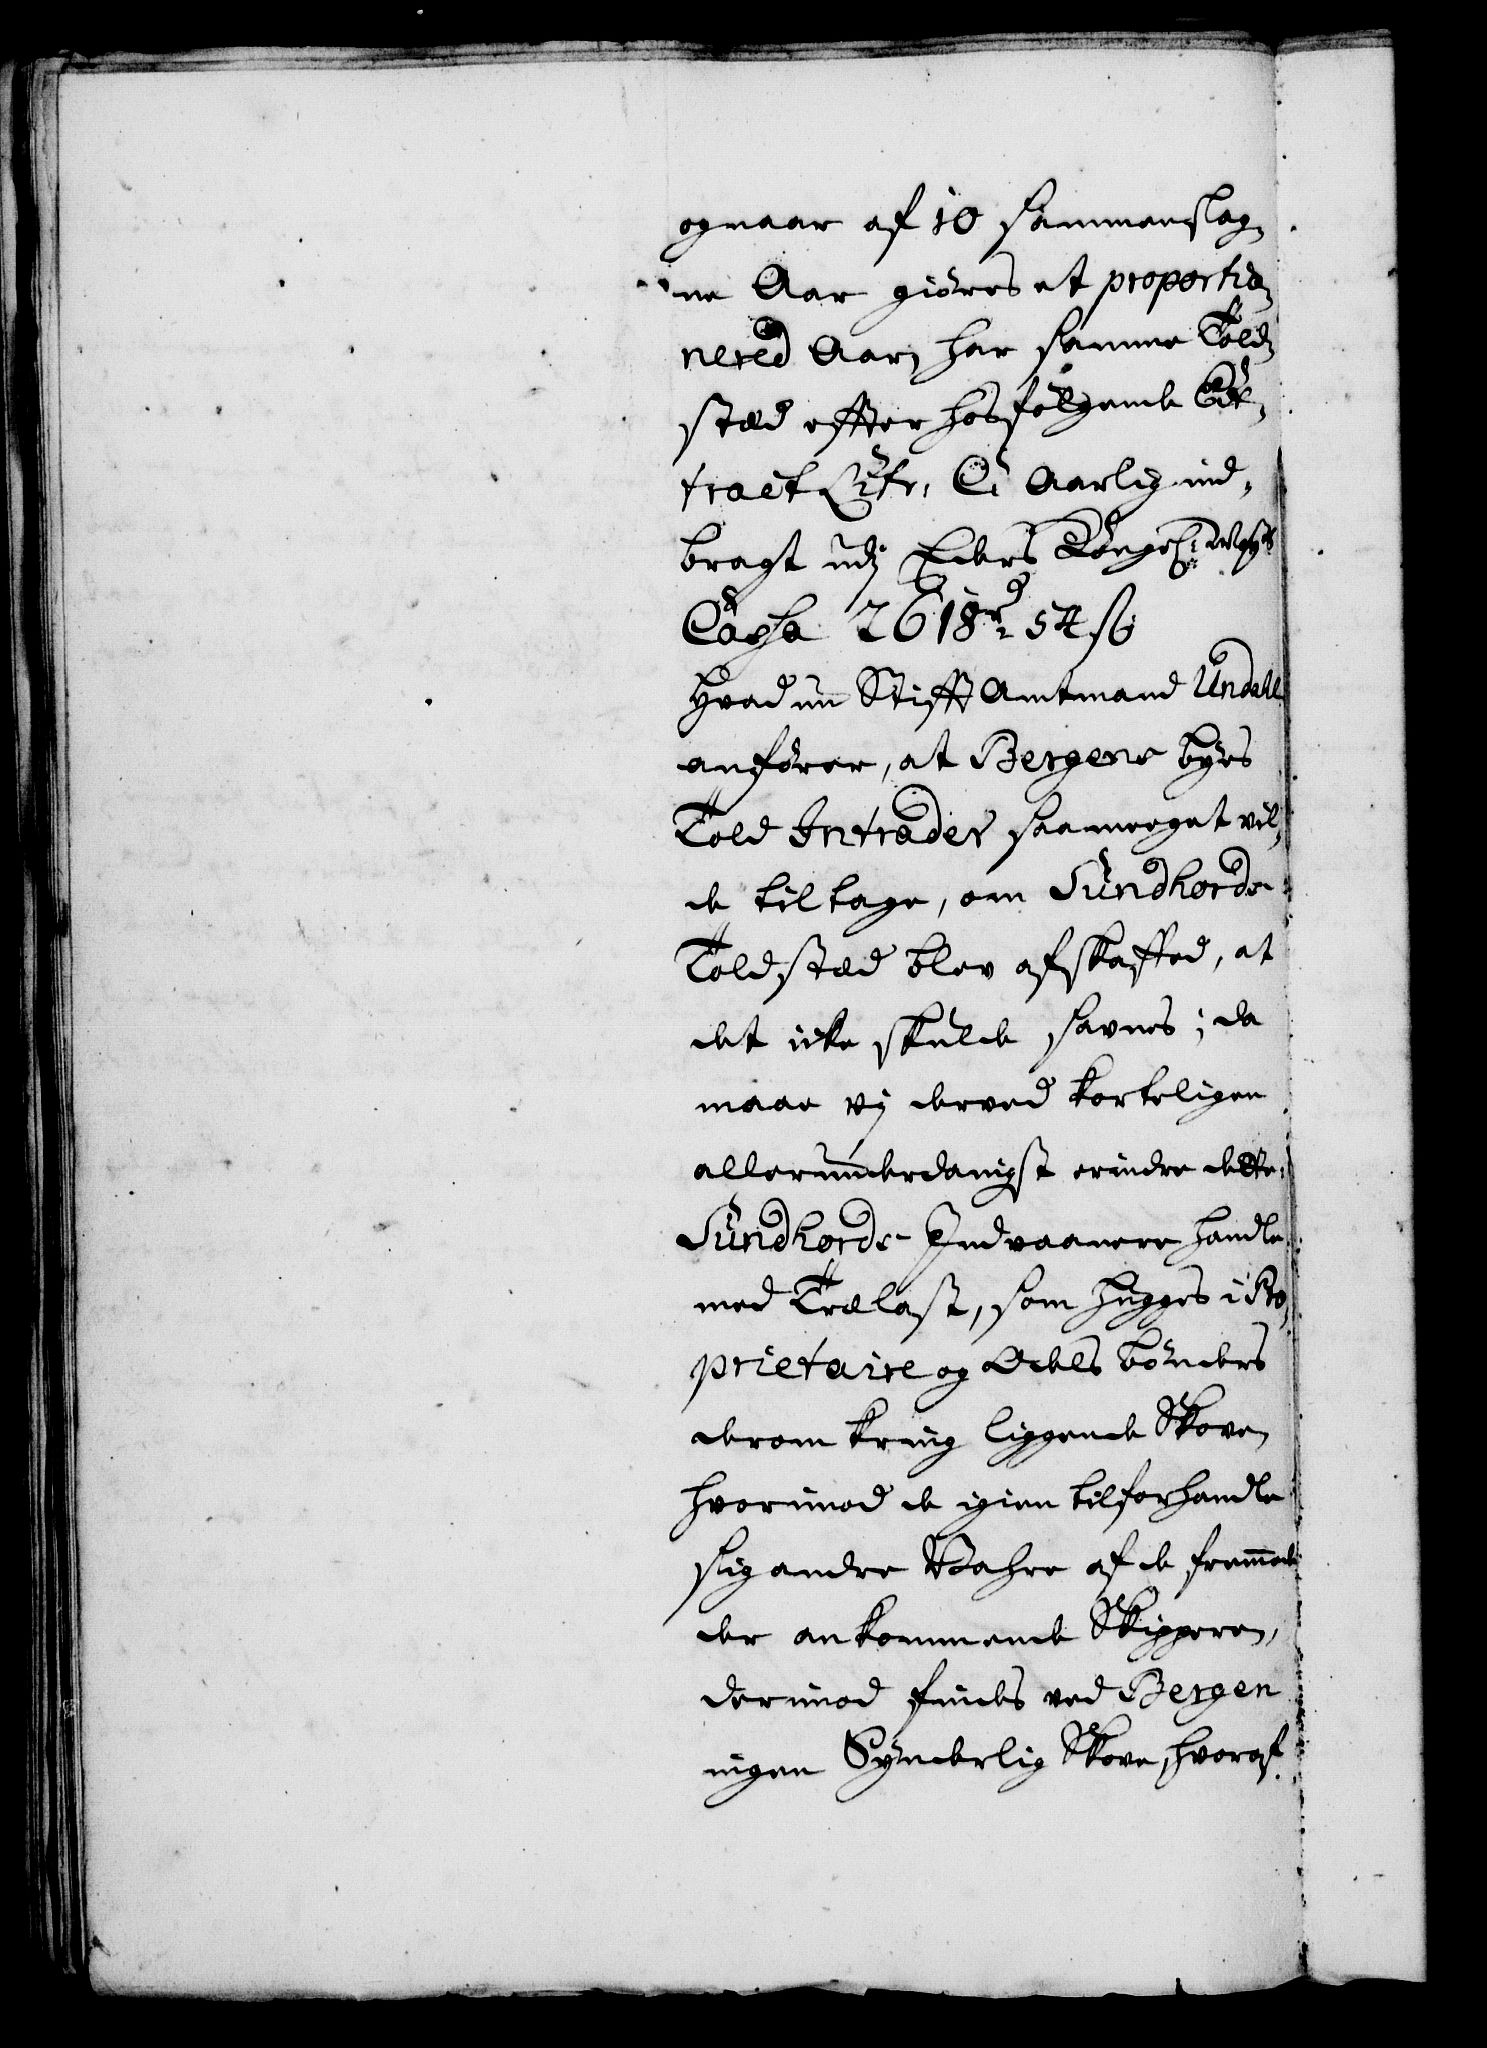 og naar af 10 sammenslag„
ne Aar giöres et proportio„
nered Aar, har samme Told„
stæd efter hosfölgende Ex„
tract Litr. C. Aarlig ind„
bragt udj Eders Kongel: Mayts
Cassa 2618 rd 54 ß
Hvad nu Stifft Amtmand Undall
anförer, at Bergens byes
Told Intrader saameeget vil„
de tiltage, om Sundhords
Toldstæd blev afskaffed, at
det icke skulde savnes; da
maae vj derved korteligen
allerunderdanigst erindre dette:
Sundhords Indvaanere handle
med Trælast, som hugges i Pro„
prietaire og Odels bönders
deromkring liggende Skove,
hvorimod de igien tilforhandle
sig andre Vahre af de fremmede
der ankommende Skippere,
derimod findes ved Bergen
ingen Synderlig Skove, hvoraf